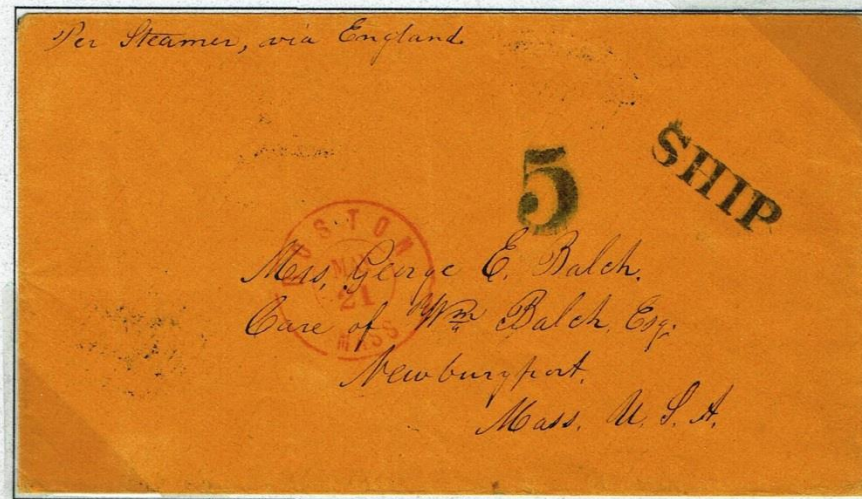 Per Steamer, via England
5
SHIP
BOSTON
MAY
21
MASS
Mrs. George E. Balch.
Care of Wm Balch, Esq.
Newburyport,
Mass. U. S. A.